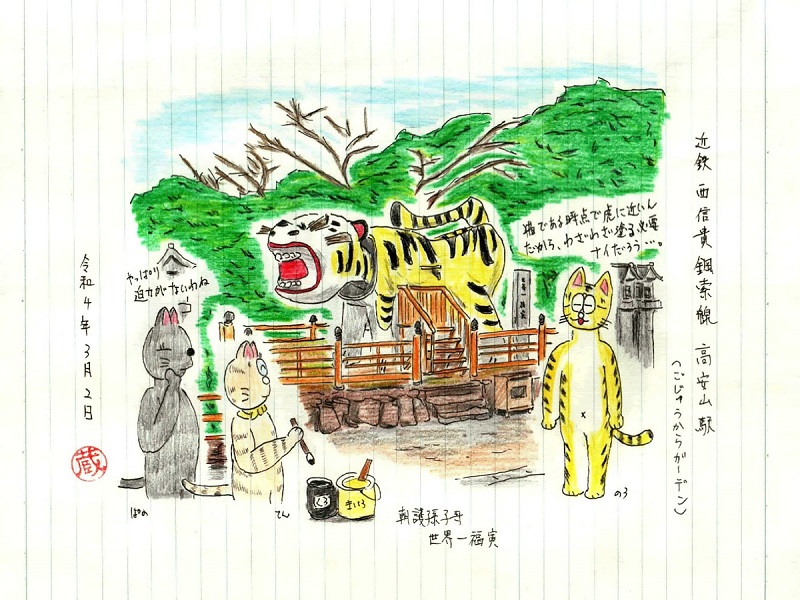 近鉄 西信貴鋼索線 高安山駅
(ごじゅうからガーデン)
猫である時点で虎に近いん
だから、わざわざ塗る必要
ナイだろう…。
やっぱり
迫力がないわね
令和4年3月2日
蔵
ぱの
てん
くろ
きいろ
のろ
朝護孫子寺
世界一福寅